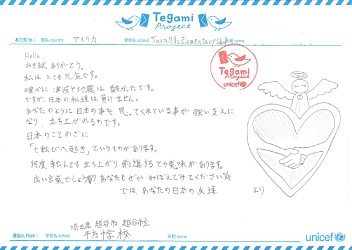 Tegami
Project
あて先 To:
国名 country
アメリカ
学校名 school
Tuvalhs Elementary School
名前 name
Hello.
お手紙ありがとう。
私は とても元気です。
確かに 津波や地震は 酷かったです。
ですが、日本の私達は 負けません。
あなたのように 日本の事を 思ってくれている事が 強い支えに
なり、立ち上がれるのです。
日本のことわざに
「七転び八起き」というものがあります。
何度 転んでも 立ち上がり
という意味があります。
良い言葉でしょう?
あなたも どうか がんばって下さい
では、あなたの日本の友達
より
Tegami
Project
unicef
埼玉県 越谷市 越谷市立
差出人 From:
学校名 school
名前 name
unicef